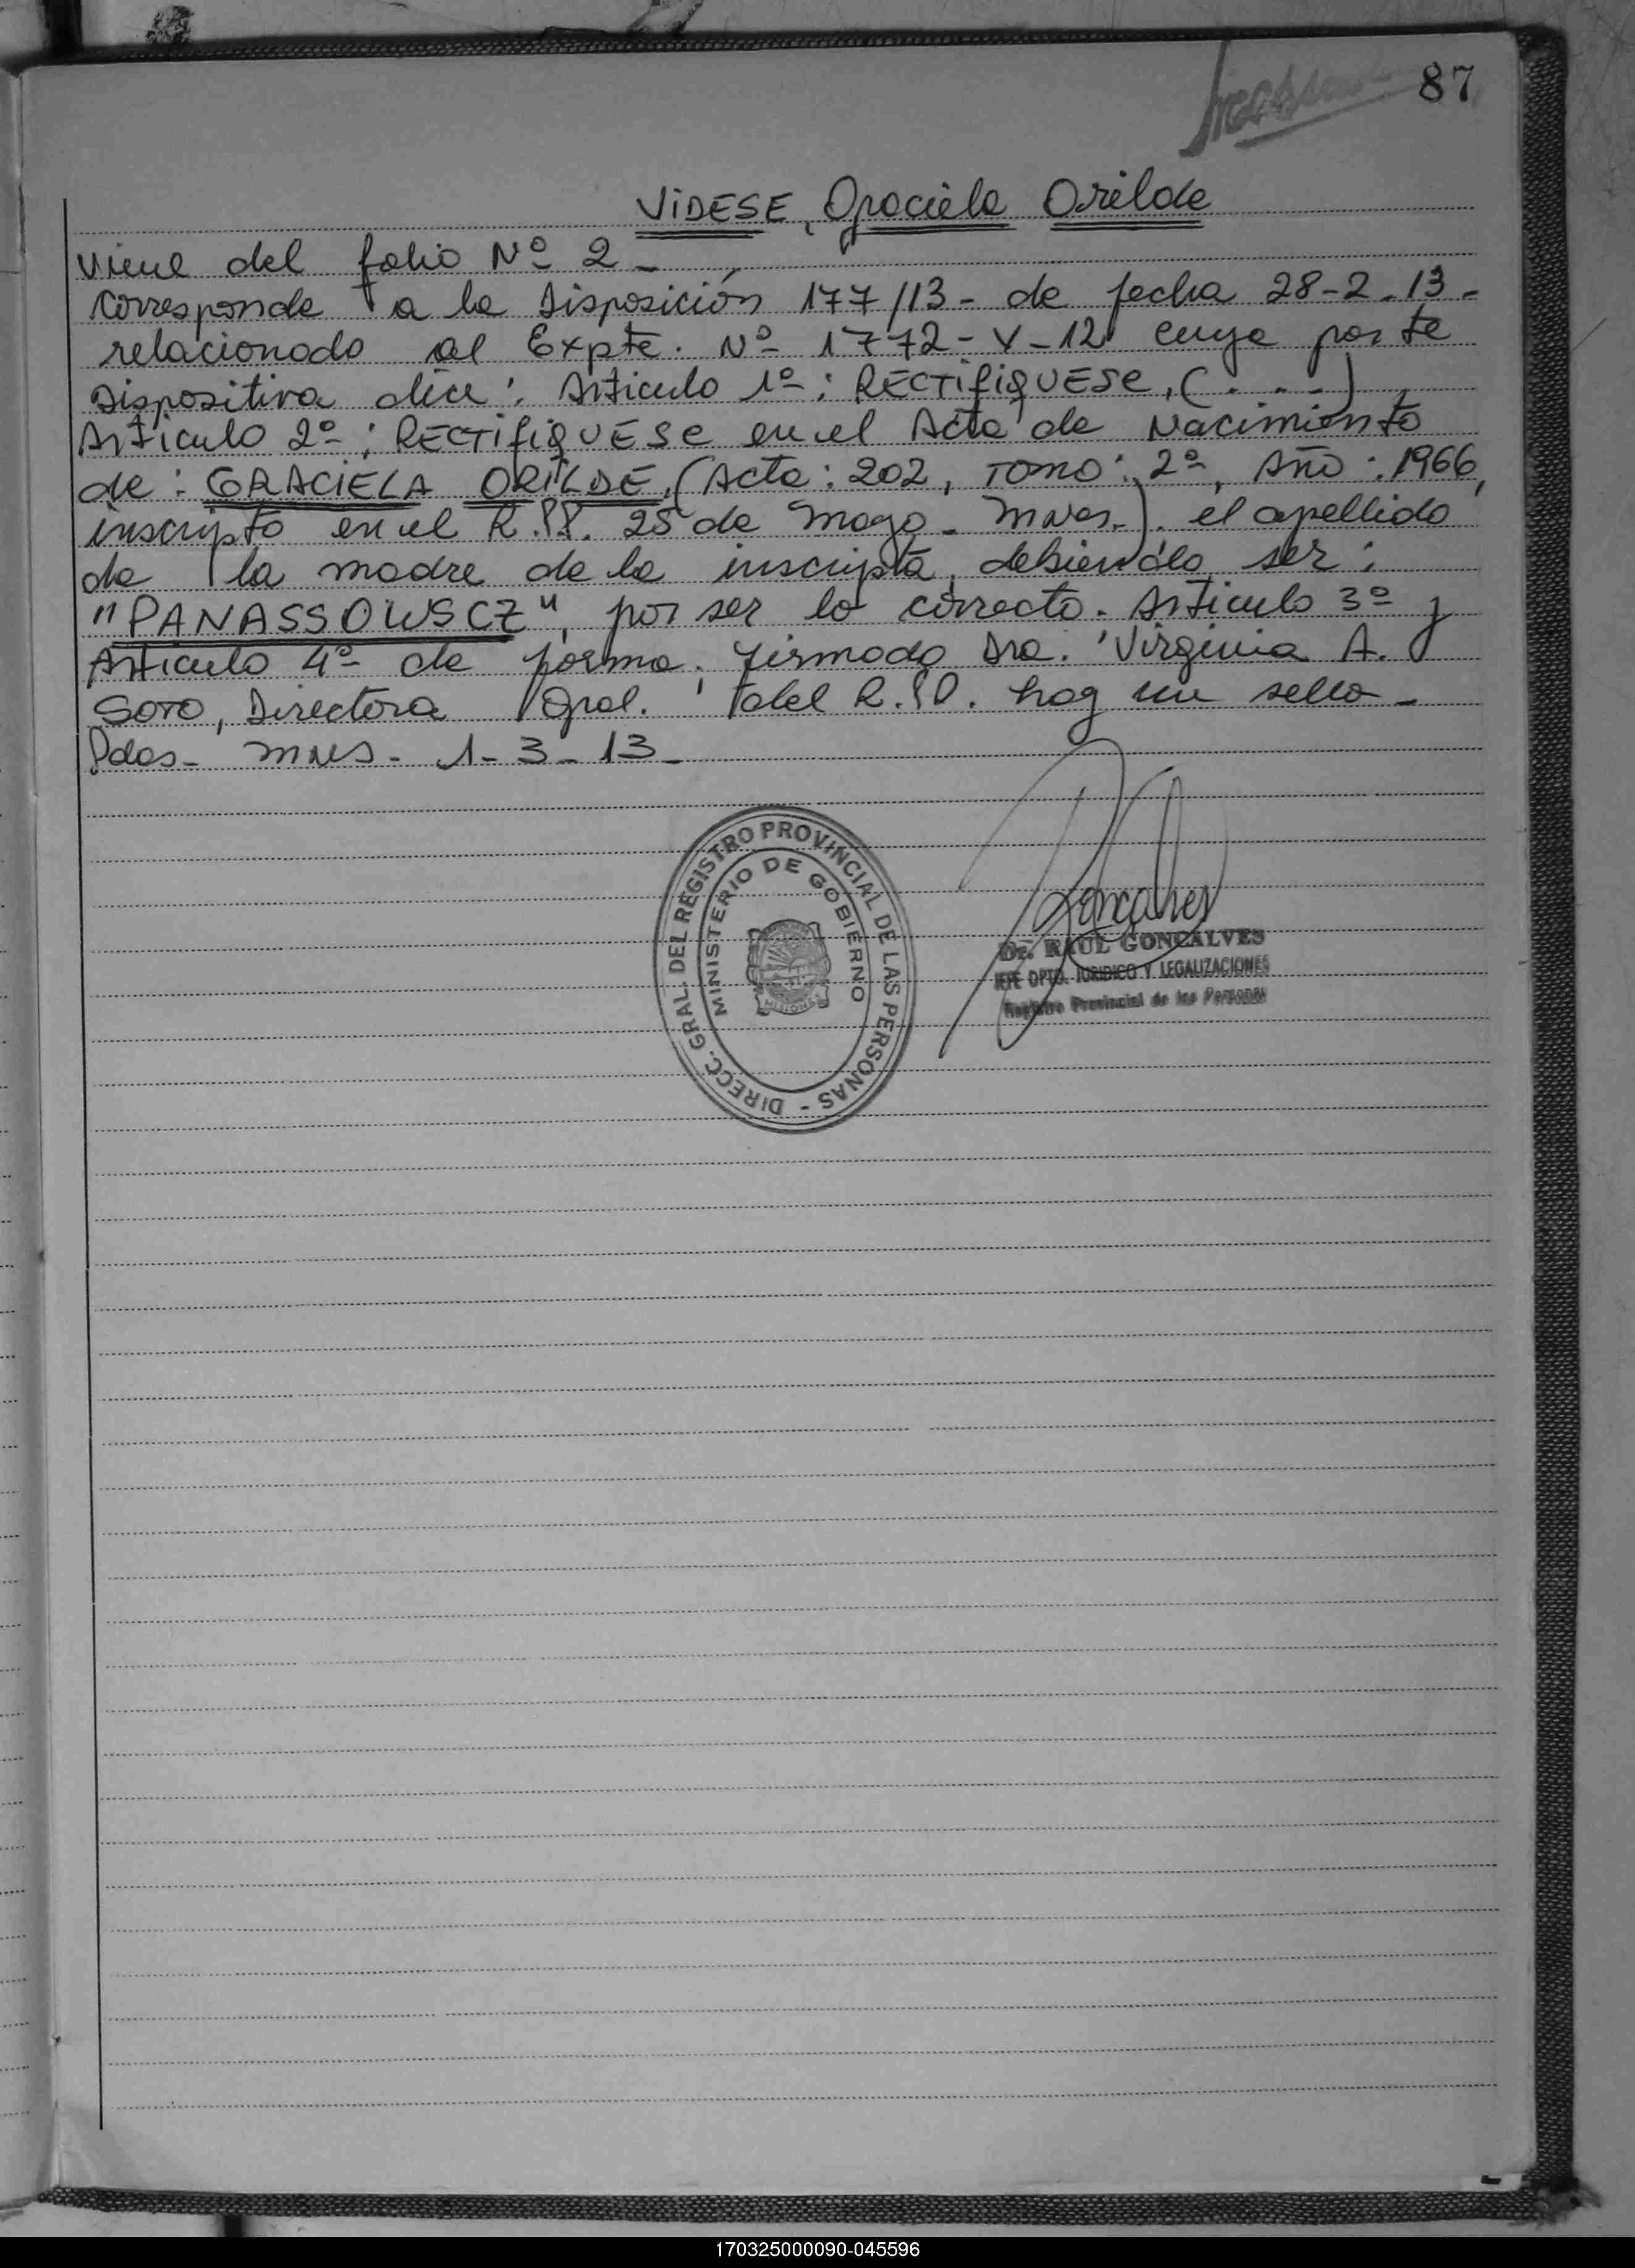 87
VIDESE, Graciela Orilde
Viene del folio Nº 2 -
Corresponde a la Disposición 177/13 - de fecha 28-2-13 -
relacionado al Expte. Nº 1772-V-12 cuya parte
Dispositiva dice: Articulo 1º: RECTIFIQUESE, (....),
Articulo 2º: RECTIFIQUESE en el Acta de Nacimiento
de: GRACIELA ORILDE, (Acta: 202, TOMO: 2º, Año: 1966,
inscripto en el R.PP. 25 de Mayo - MNes.). el apellido
de la madre de la inscripta, debiendo ser:
"PANASSOWSCZ", por ser lo correcto. Articulo 3º y
Articulo 4º de forma. Firmado Dra. Virginia A.
SOTO, Directora Gral. del R.PP. hay un sello -
Pdas - MNES - 1-3-13 -
DIRECC. GRAL. DEL REGISTRO PROVINCIAL DE LAS PERSONAS -
MINISTERIO DE GOBIERNO
MISIONES
Goncalves
Dr. RAUL GONCALVES
JEFE DPTO. JURIDICO Y LEGALIZACIONES
Registro Provincial de las Personas
170325000090-045596